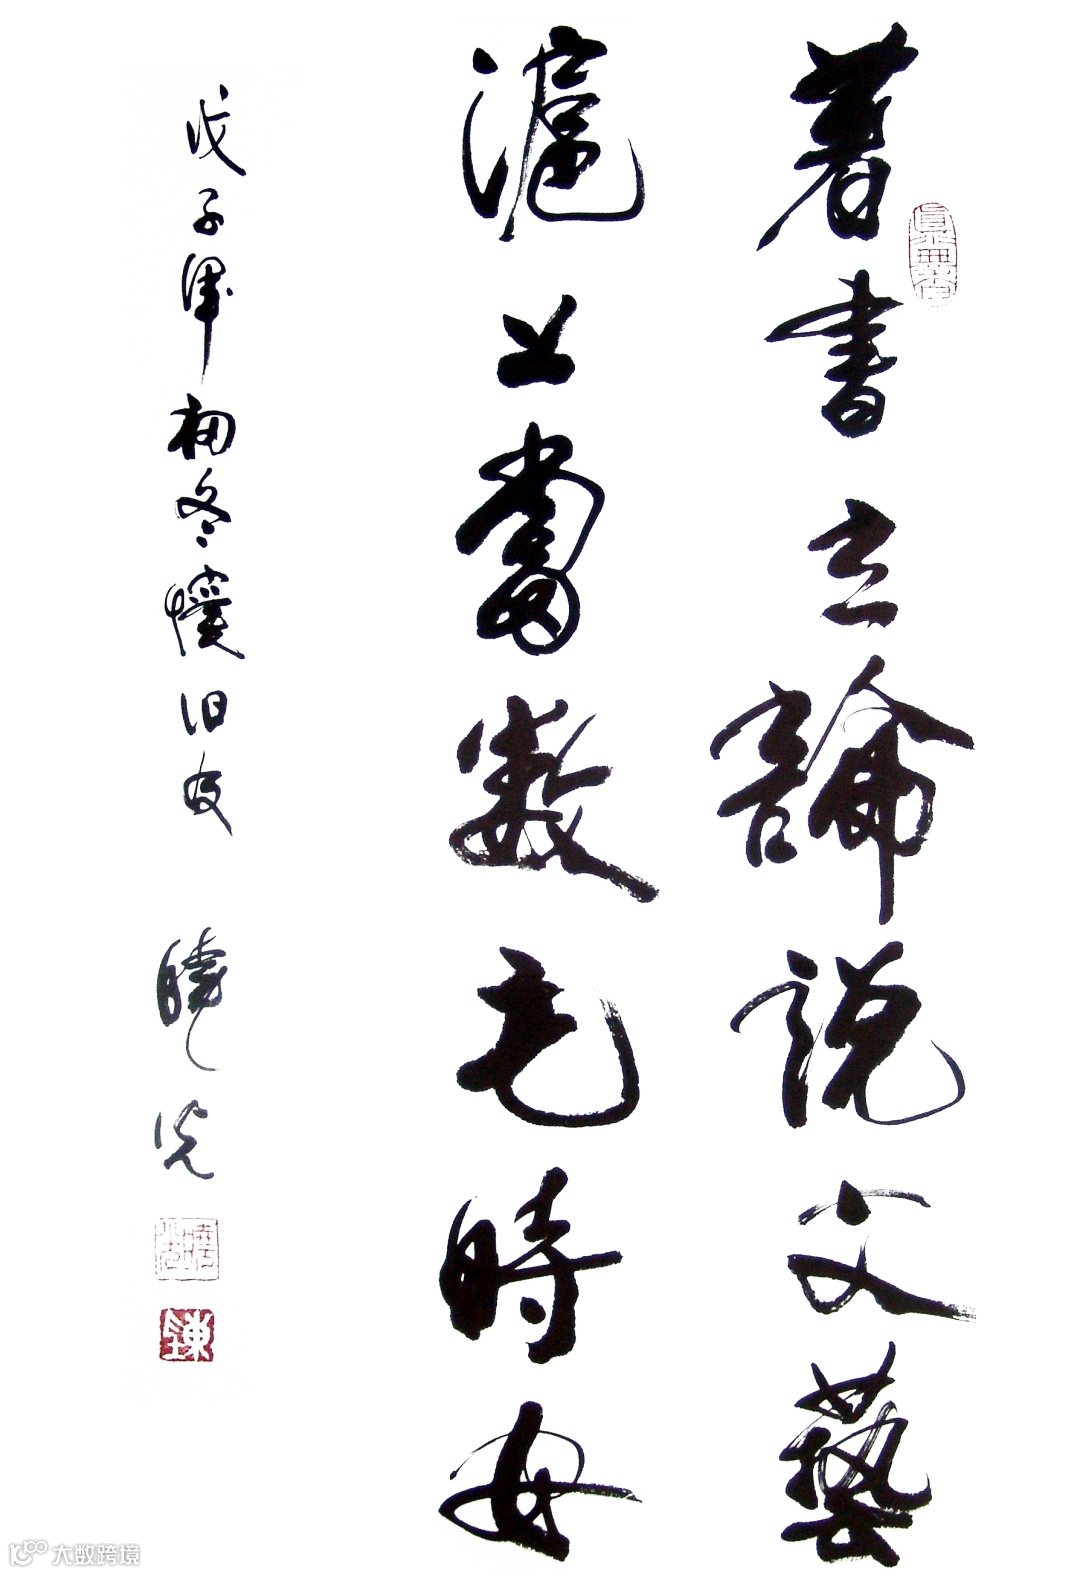 著書立論說文藝
滬上當數毛時安
戊子初冬懷旧友
曉光
陳
大数跨境